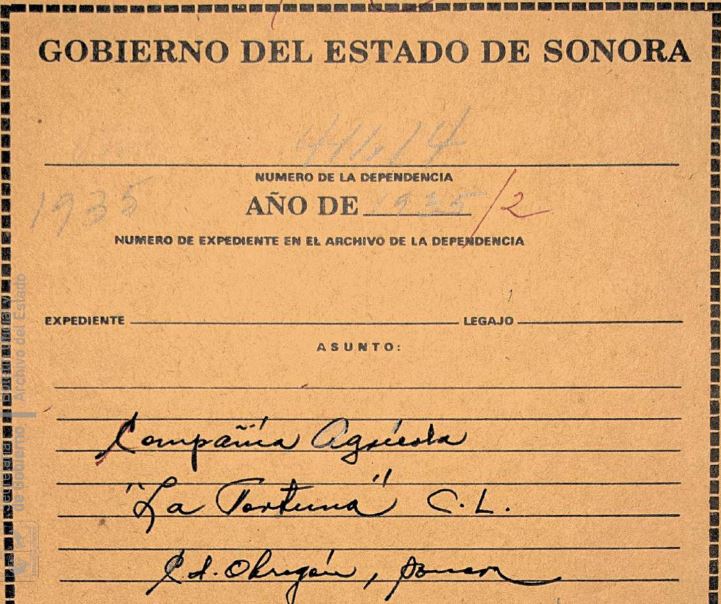 GOBIERNO DEL ESTADO DE SONORA
411.14
NUMERO DE LA DEPENDENCIA
1935
AÑO DE 1935 /2
NUMERO DE EXPEDIENTE EN EL ARCHIVO DE LA DEPENDENCIA
EXPEDIENTE LEGAJO
ASUNTO:
Compañía Agrícola
"La Fortuna" C.L.
Cd. Obregón, Sonora
Secretaría de Gobierno
Boletín Oficial y Archivo del Estado